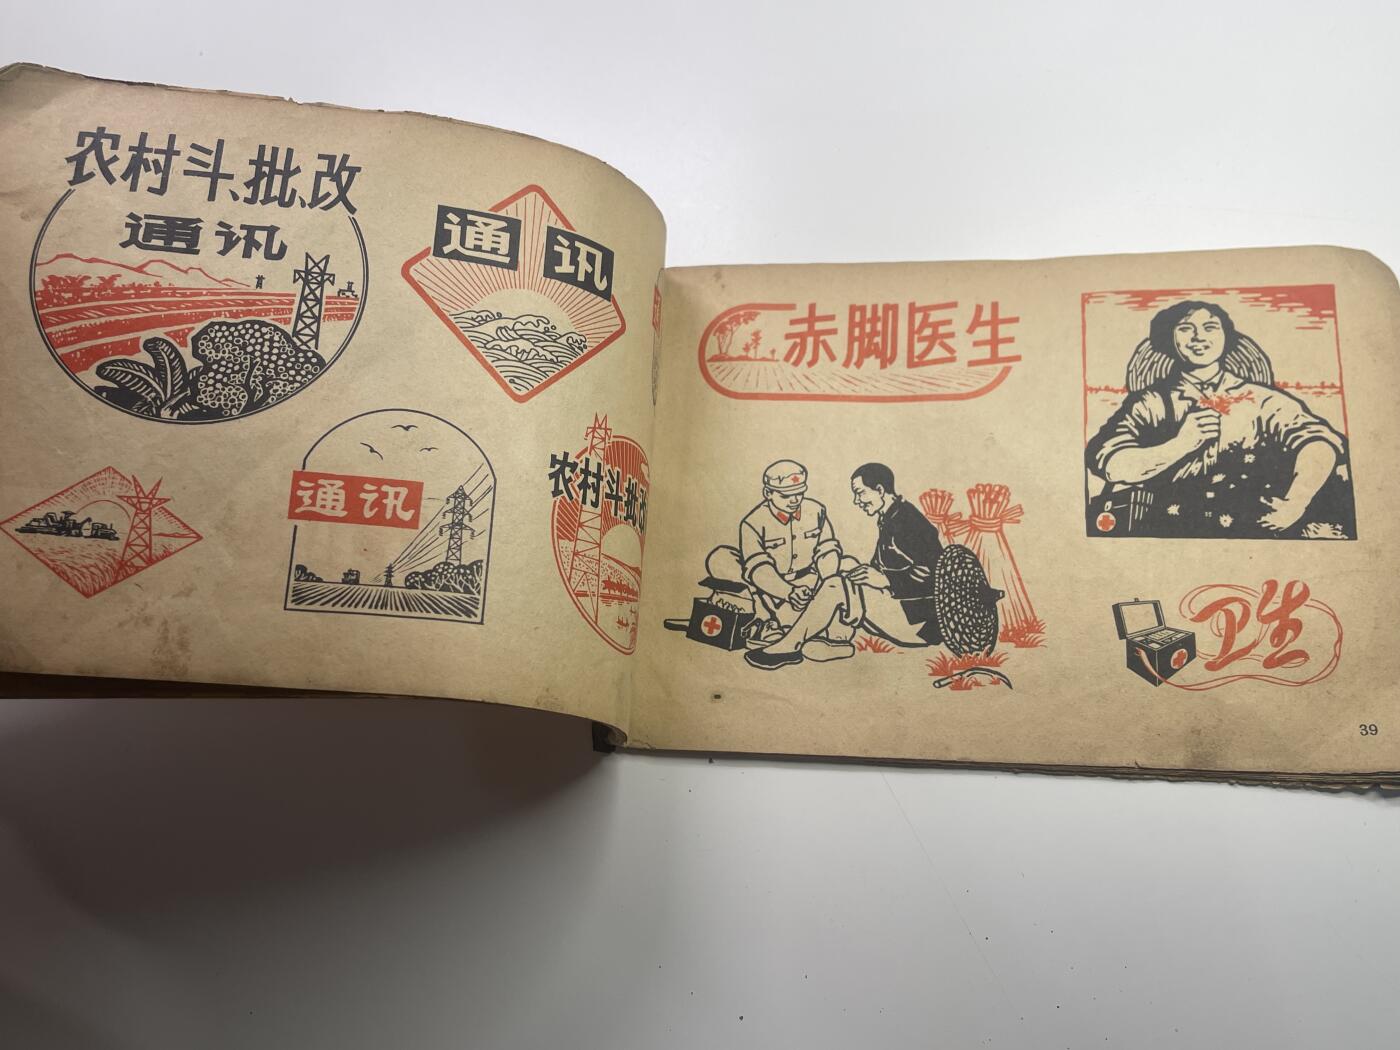 农村斗、批、改
通讯
通讯
通讯
农村斗批改
赤脚医生
卫生
39